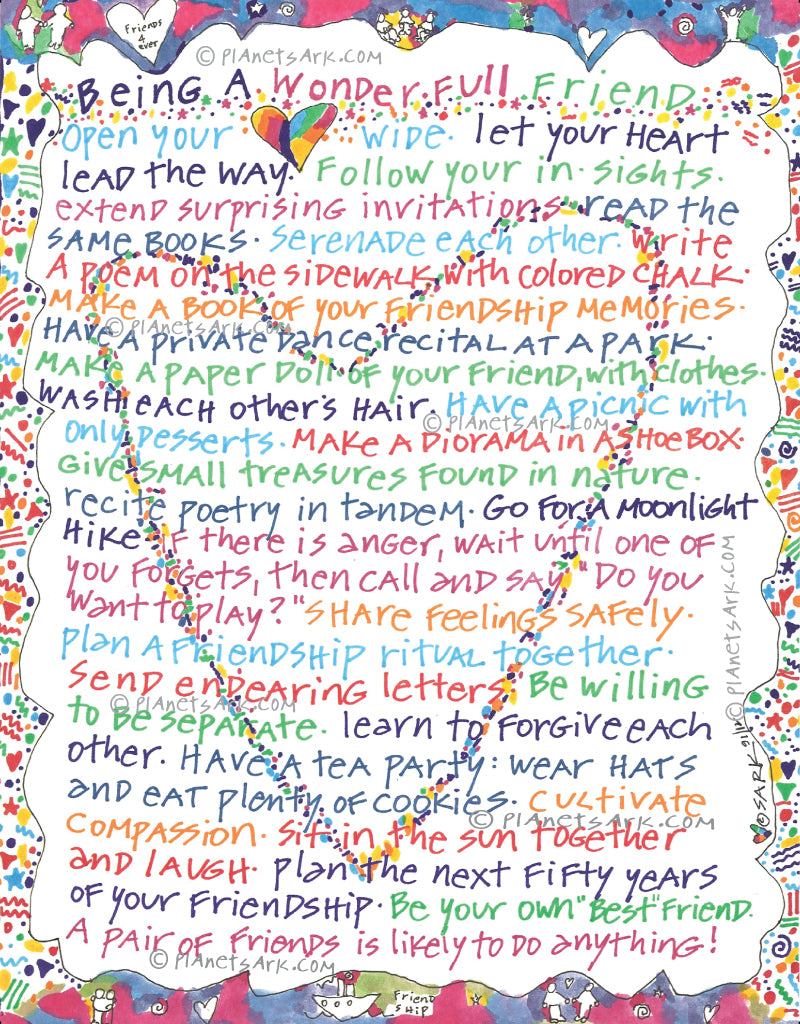 Friends 4 ever
© PlanetSark.com
Being A Wonder-Full Friend
Open your wide. let your Heart
lead the way. Follow your in-sights.
extend surprising invitations. read the
same books. Serenade each other. Write
A poem on the sidewalk with colored chalk.
Make a book of your friendship memories.
© PlanetSark.com
Have a private dance recital at a park.
Make a paper doll of your friend, with clothes.
Wash each other's hair. Have a picnic with
© PlanetSark.com
only desserts. Make a diorama in a shoebox.
Give small treasures found in nature.
recite poetry in tandem. Go for a moonlight
Hike. If there is anger, wait until one of
you forgets, then call and say, "Do you
want to play?" Share feelings safely.
plan a friendship ritual together.
Send endearing letters. Be willing
© PlanetSark.com
to be separate. learn to forgive each
other. Have a tea party: wear hats
and eat plenty of cookies. Cultivate
© PlanetSark.com
compassion. Sit in the sun together
and laugh. plan the next fifty years
of your friendship. Be your own "Best" friend.
A pair of friends is likely to do anything!
© PlanetSark.com
© PlanetSark.com
© SARK
Friend SHIP